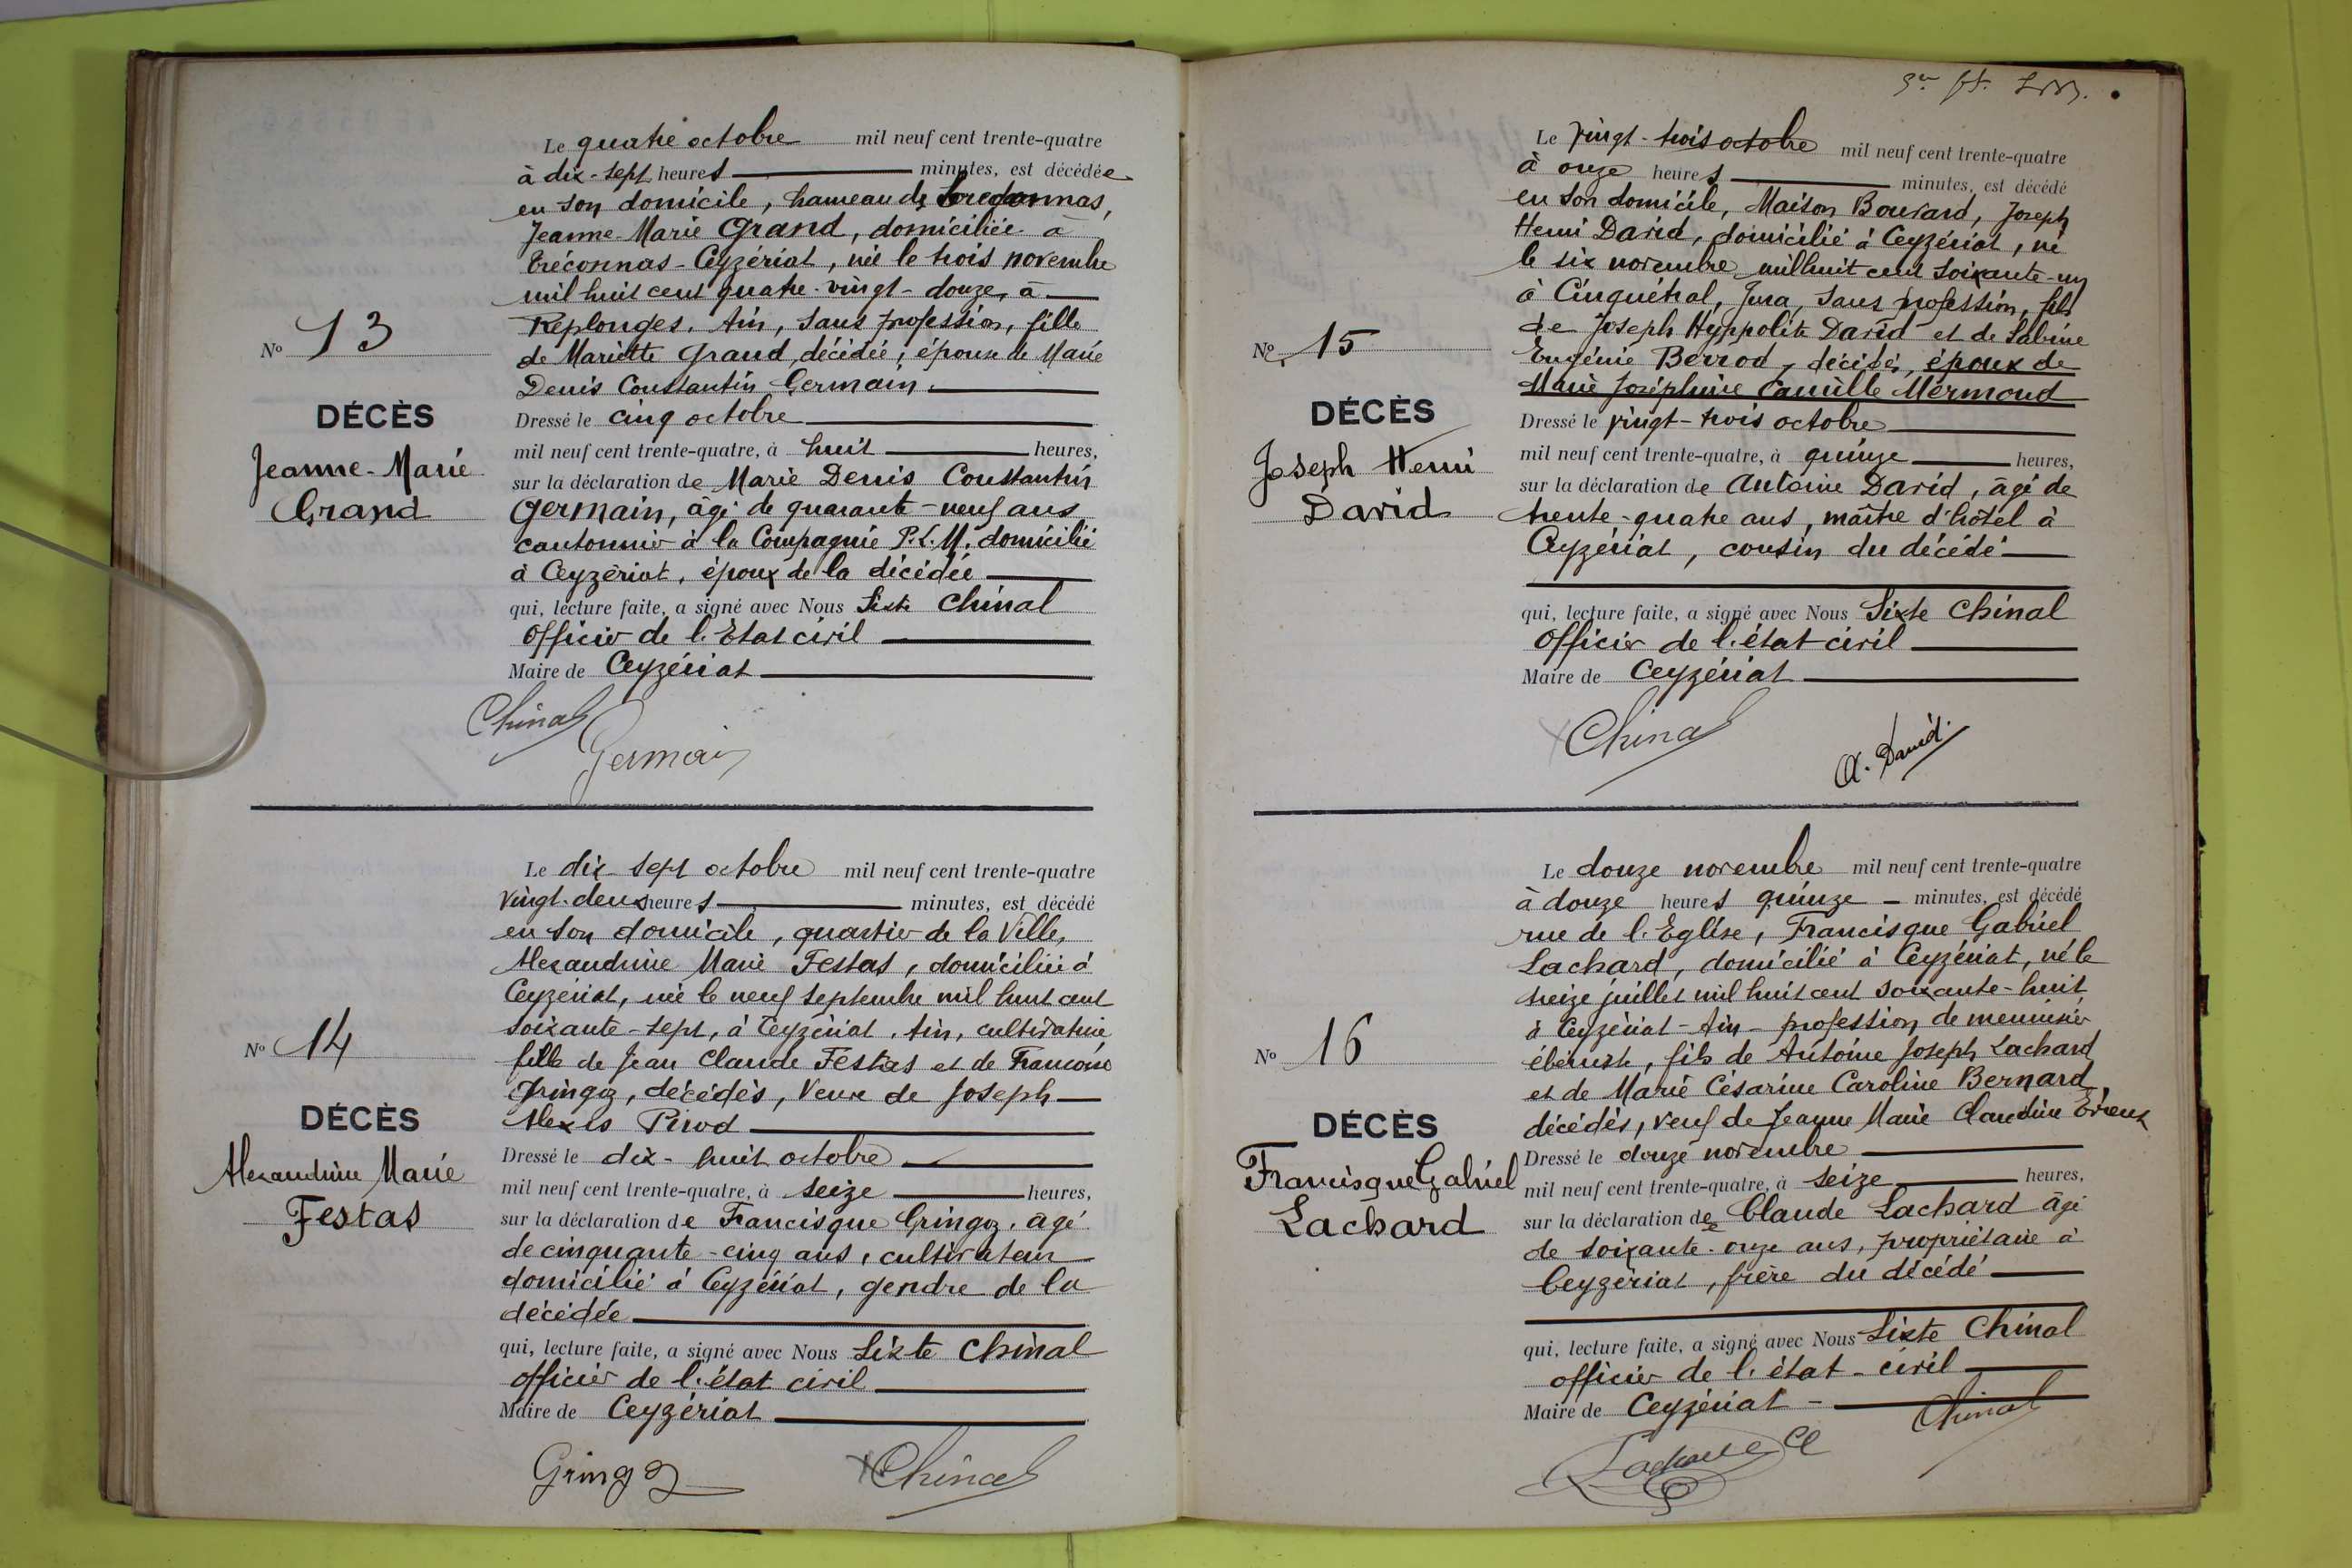 Le quatre octobre mil neuf cent trente-quatre
à dix-sept heures minutes, est décédée
en son domicile, hameau de
Jeanne-Marie Grand, domiciliée à
Tréconnas-Ceyzériat, née le trois novembre
mil huit cent quatre-vingt-douze, à
Replonges, Ain, sans profession, fille
de Mariette Grand, décédée, épouse de Marie
Denis Constantin Germain.
Nº 13
DÉCÈS
Jeanne-Marie
Grand
Dressé le cinq octobre
mil neuf cent trente-quatre, à huit heures,
sur la déclaration de Marie Denis Constantin
Germain, âgé de quarante-neuf ans
cantonnier à la Compagnie P.L.M. domicilié
à Ceyzériat, époux de la décédée
qui, lecture faite, a signé avec Nous Sixte Chinal
Officier de l'État civil
Maire de Ceyzériat
Chinal
Germain
Le dix-sept octobre mil neuf cent trente-quatre
vingt-deux heures minutes, est décédé
en son domicile, quartier de la Ville,
Alexandrine Marie Festas, domiciliée à
Ceyzériat, née le neuf septembre mil huit cent
soixante-sept, à Ceyzériat, Ain, cultivatrice
fille de Jean Claude Festas et de Françoise
Gringoz, décédés, veuve de Joseph
Alexis Pirod
Nº 14
DÉCÈS
Alexandrine Marie
Festas
Dressé le dix-huit octobre
mil neuf cent trente-quatre, à seize heures,
sur la déclaration de Francisque Gringoz, âgé
de cinquante-cinq ans, cultivateur
domicilié à Ceyzériat, gendre de la
décédée
qui, lecture faite, a signé avec Nous Sixte Chinal
officier de l'état civil
Maire de Ceyzériat
Gringoz
Chinal
Le vingt-trois octobre mil neuf cent trente-quatre
à onze heures minutes, est décédé
en son domicile, Maison Bouvard, Joseph
Henri David, domicilié à Ceyzériat, né
le six novembre mil huit cent soixante-un
à Cinquétral, Jura, sans profession, fils
de Joseph Hyppolite David et de Sabine
Eugénie Berrod, décédés, époux de
Marie Joséphine Camille Mermoud
Nº 15
DÉCÈS
Joseph Henri
David
Dressé le vingt-trois octobre
mil neuf cent trente-quatre, à quinze heures,
sur la déclaration de Antoine David, âgé de
trente-quatre ans, maître d'hôtel à
Ceyzériat, cousin du décédé
qui, lecture faite, a signé avec Nous Sixte Chinal
Officier de l'état civil
Maire de Ceyzériat
Chinal
A. David.
Le douze novembre mil neuf cent trente-quatre
à douze heures quinze minutes, est décédé
rue de l'Eglise, Francisque Gabriel
Lachard, domicilié à Ceyzériat, né le
treize juillet mil huit cent soixante-huit
à Ceyzériat-Ain-profession de menuisier
ébéniste, fils de Antoine Joseph Lachard
et de Marie Césarine Caroline Bernard,
décédés, veuf de Jeanne Marie Claudine
Nº 16
DÉCÈS
Francisque Gabriel
Lachard
Dressé le douze novembre
mil neuf cent trente-quatre, à seize heures,
sur la déclaration de Claude Lachard âgé
de soixante-onze ans, propriétaire à
Ceyzériat, frère du décédé
qui, lecture faite, a signé avec Nous Sixte Chinal
officier de l'état-civil
Maire de Ceyzériat
Chinal
Lachard Cl